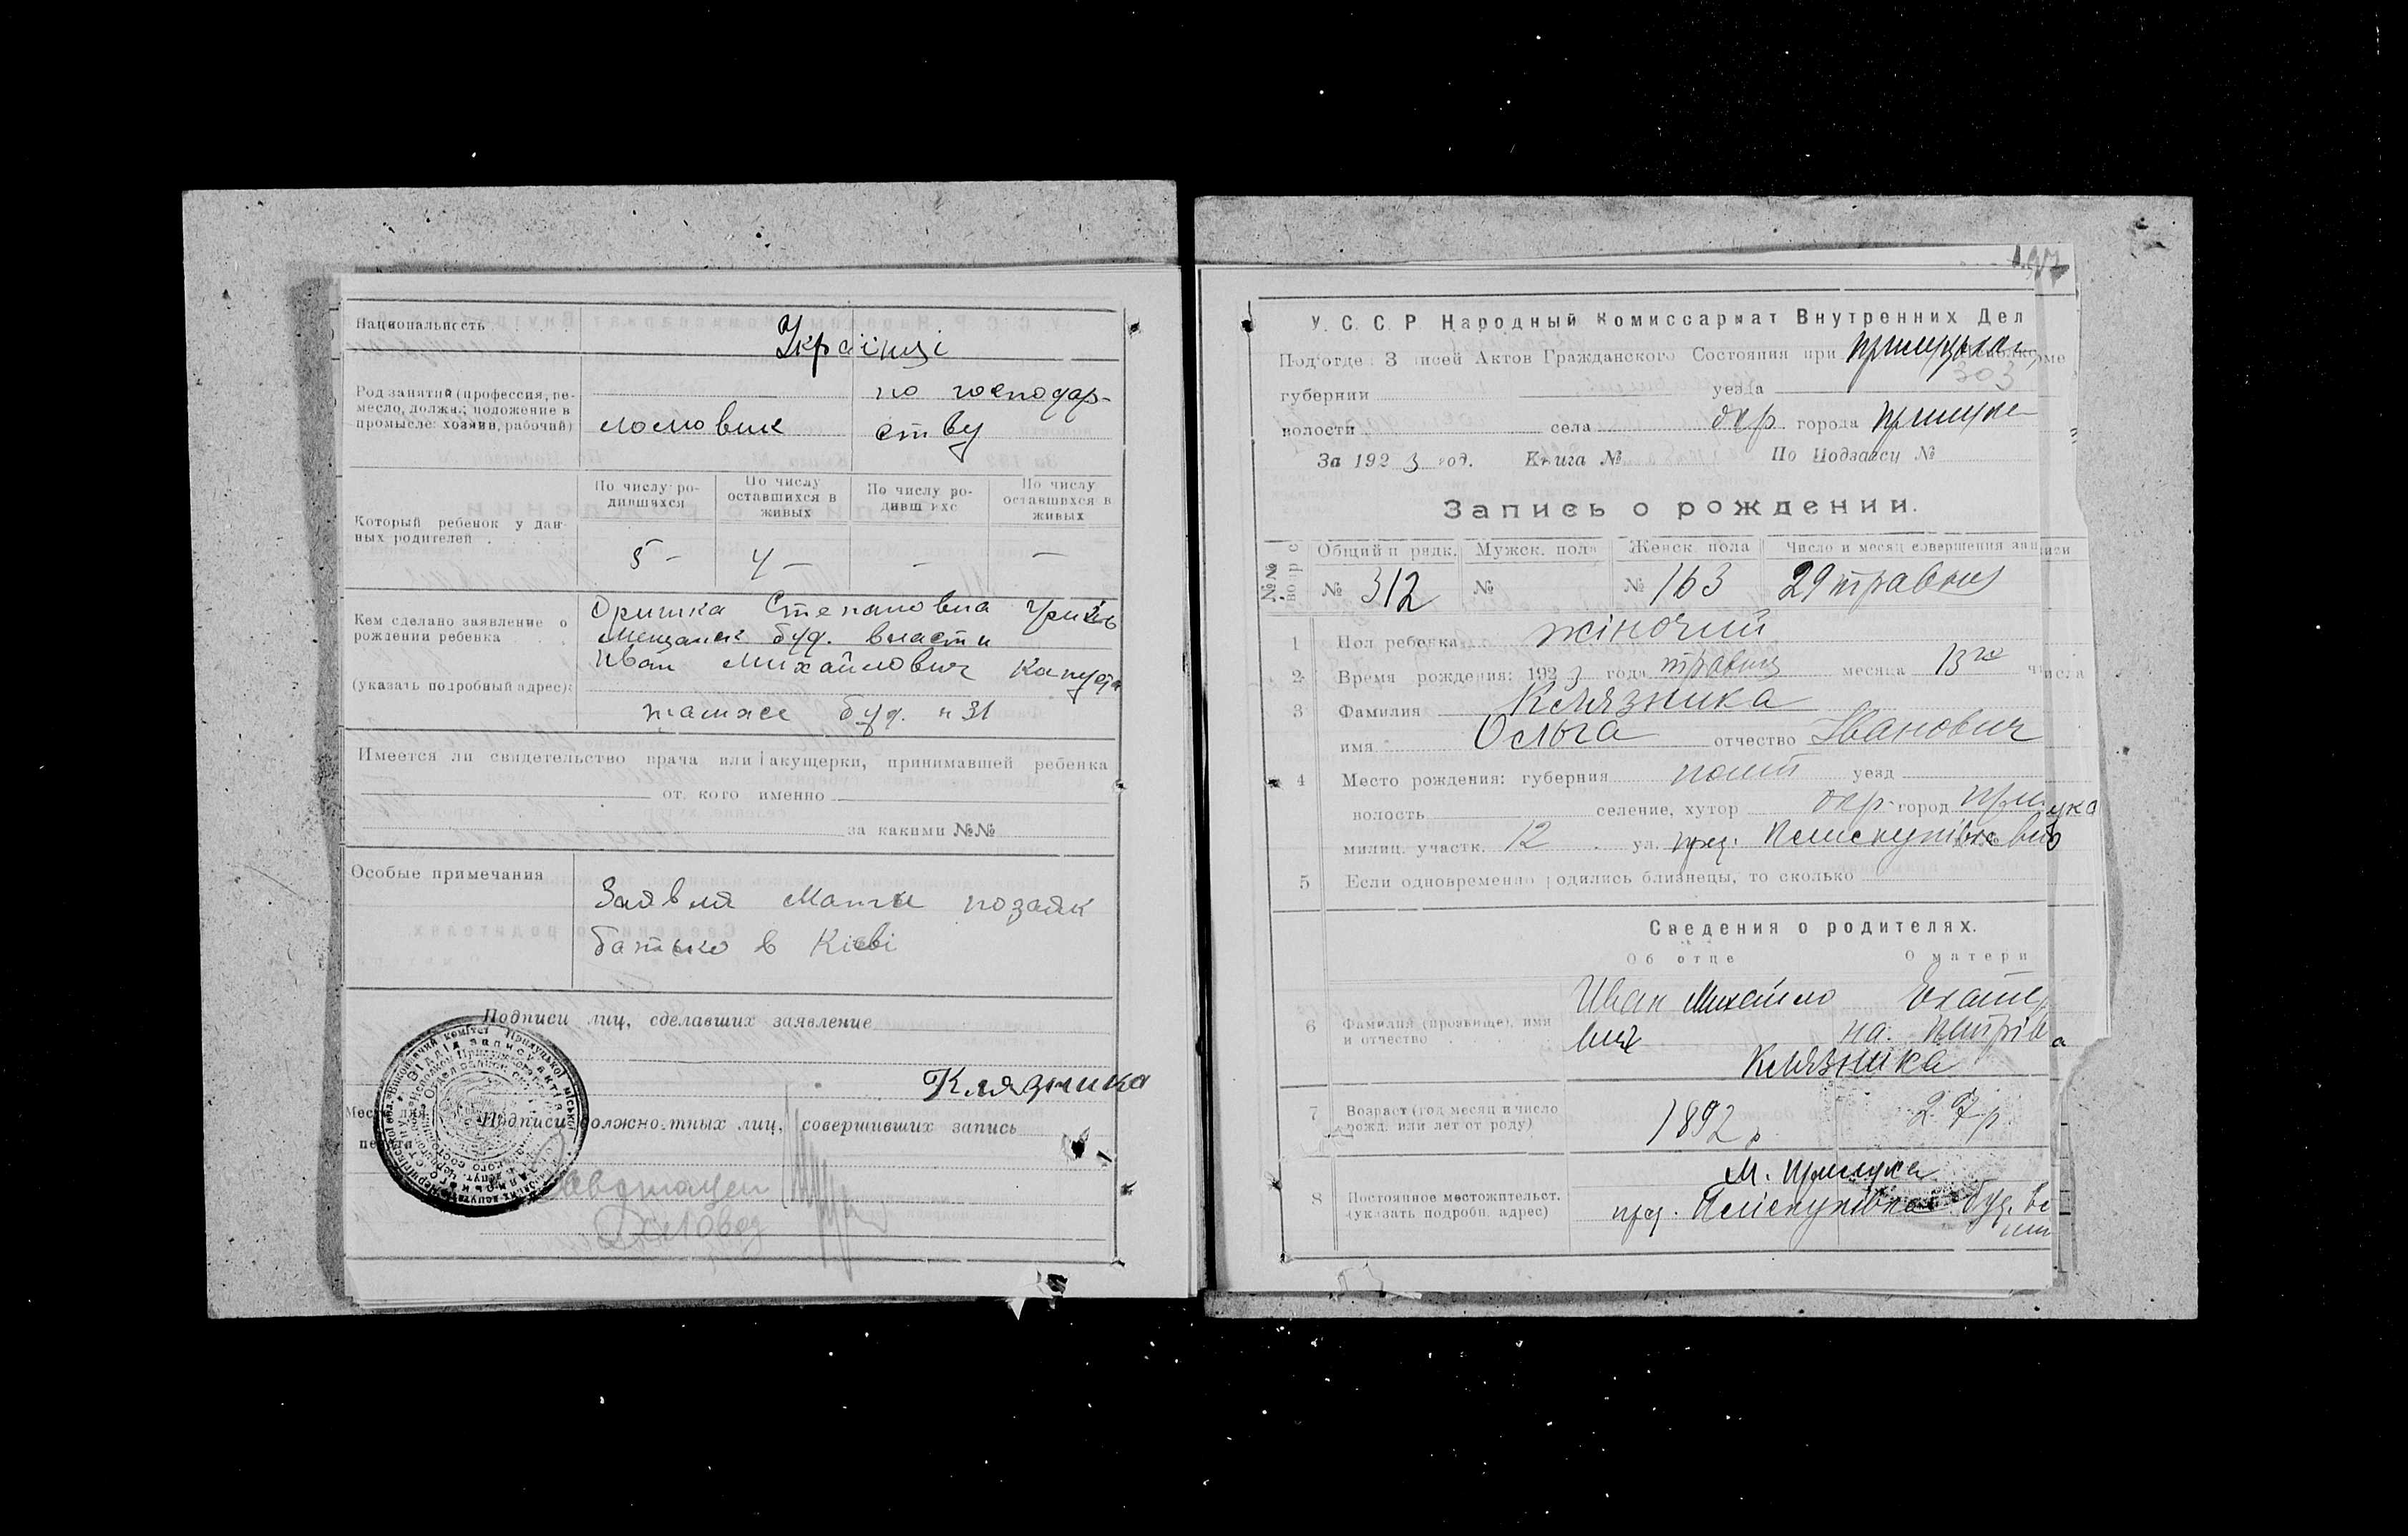 Национальность
Українці
Род занятий (профессия, ре-
месло, должн.; положение в
промысле: хозяин, рабочий)
ломовик
по господар-
ству
Который ребенок у дан-
ных родителей
По числу ро-
дившихся
По числу
оставшихся в
живых
По числу ро-
дивш ихс
По числу
оставшихся в
живых
5 -
4 -
-
-
Кем сделано заявление о
рождении ребенка
(указать подробный адрес):
Оришка Степановна
буд. власти
Иван Михайлович Капуста
буд. н 31
Имеется ли свидетельство врача или акущерки, принимавшей ребенка
от кого именно
за какими №№
Особые примечания
Заявля Мати позаяк
батько в Кієві
Подписи лиц, сделавших заявление
Клязника
Место для
печати
Подписи должностных лиц, совершивших запись
Діловод
У. С. С. Р Народный Комиссариат Внутренних Дел
Под'отде З писей Актов Гражданского Состояния при
губернии уезда 303
волости села окр города Прилуке
За 1923 год. Книга № По Подзаису №
Запись о рождении.
№№
Общий п рядк.
Мужск. пола
Женск. пола
Число и месяц совершения записи
№ 312 № № 163 29 травня
1 Пол ребенка жіночий
2 Время рождения: 1923 года травня месяца 13го числа
3 Фамилия Клязника
имя Ольга отчество Іванович
4 Место рождения: губерния полт уезд
волость селение, хутор окр город Прилука
милиц. участк. 12 ул. пред.
5 Если одновременно родились близнецы, то сколько
Сведения о родителях.
Об отце О матери
6 Фамилия (прозвище), имя
и отчество
Иван Михайло
вич
Екатер
на Питрівна
Клязника
7 Возраст (год месяц и число
рожд. или лет от роду)
1892 р
27 р.
8 Постоянное местожительст.
(указать подробн. адрес)
м. Прилука
пред. буд. вс